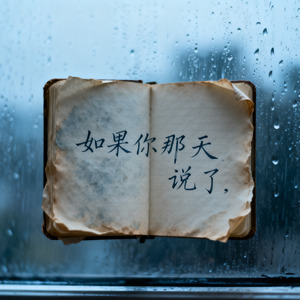 如果你那天
说了，